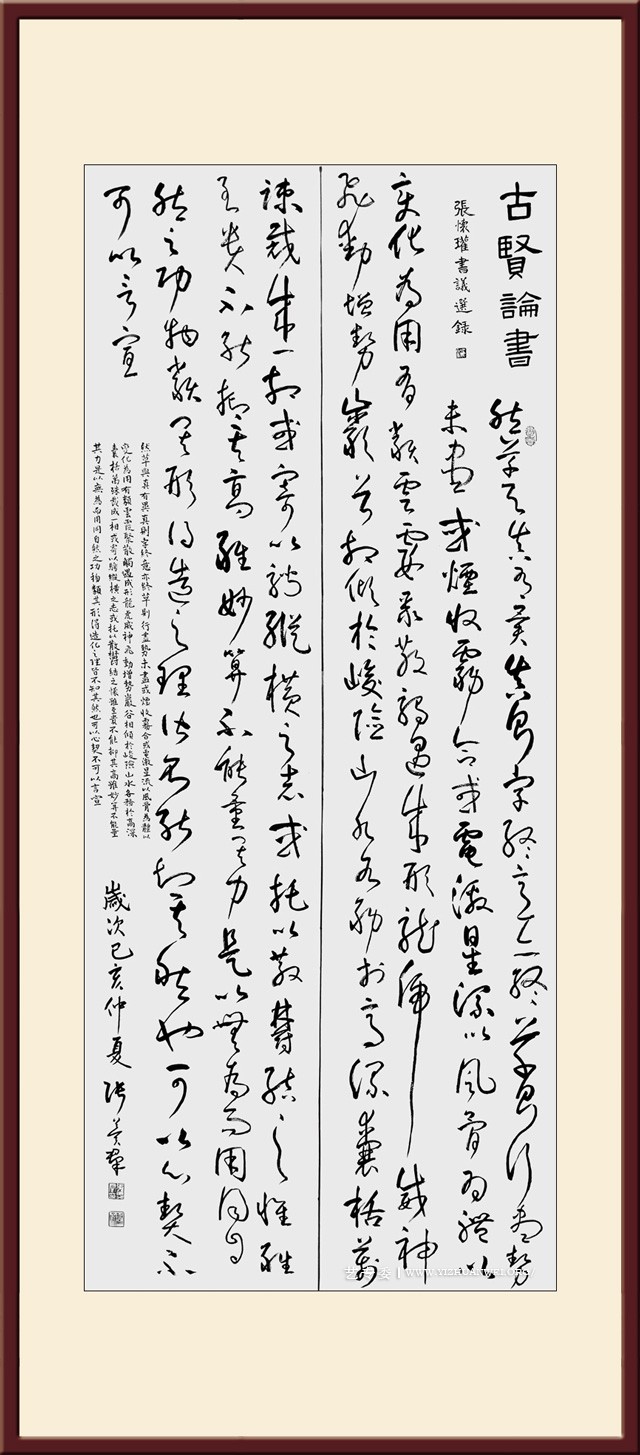 古賢論書
張懷瓘書議選錄
然草與真有異真則字終意亦終草則行盡勢
未盡或煙收霧合或電激星流以風骨為體以
變化為用有類雲霞聚散觸遇成形龍虎威神
飛動增勢巖谷相傾於峻險山水各務於高深囊括萬
殊裁成一相或寄以騁縱橫之志或托以散鬱結之懷雖
至貴不能抑其高雖妙算不能量其力是以無為而用同自
然之功物類其形得造之理皆不能知其然也可以心契不
可以言宣
然草與真有異真則字終意亦終草則行盡勢未盡或煙收霧合或電激星流以風骨為體以
變化為用有類雲霞聚散觸遇成形龍虎威神飛動增勢巖谷相傾於峻險山水各務於高深
囊括萬殊裁成一相或寄以騁縱橫之志或托以散鬱結之懷雖至貴不能抑其高雖妙算不能量
其力是以無為而用同自然之功物類其形得造化之理皆不知其然也可以心契不可以言宣
歲次己亥仲夏張
艺专委